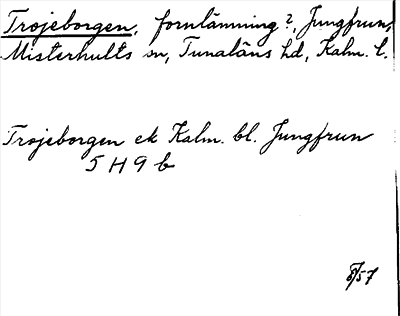 Trojeborgen, fornlämning?, Jungfrun,
Misterhults sn, Tunaläns hd, Kalm. l.
Trojeborgen ek Kalm. bl. Jungfrun
5 H 9 b
8/57